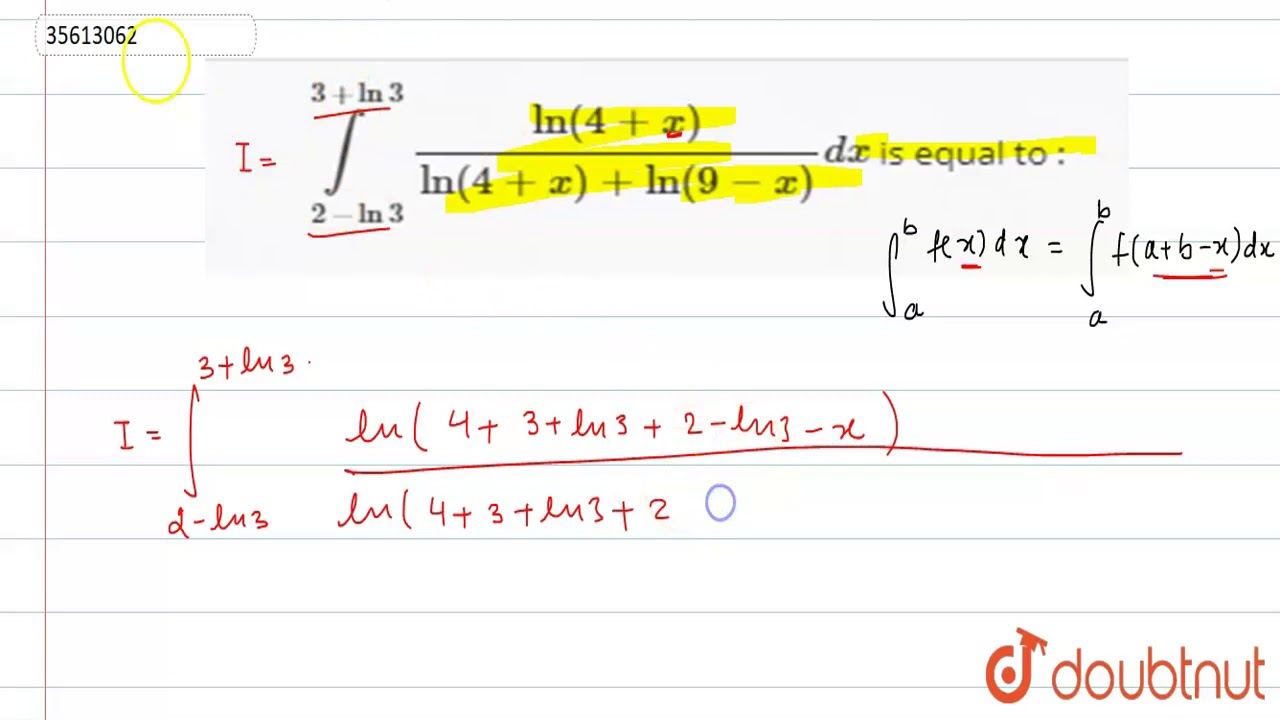 35613062
I = ∫_{2 − ln 3}^{3 + ln 3} ln(4 + x) / (ln(4 + x) + ln(9 − x)) dx is equal to :
∫_a^b f(x) dx = ∫_a^b f(a+b−x) dx
I = ∫_{2−ln3}^{3+ln3} ln(4+3+ln3+2−ln3−x) / ln(4+3+ln3+2
doubtnut